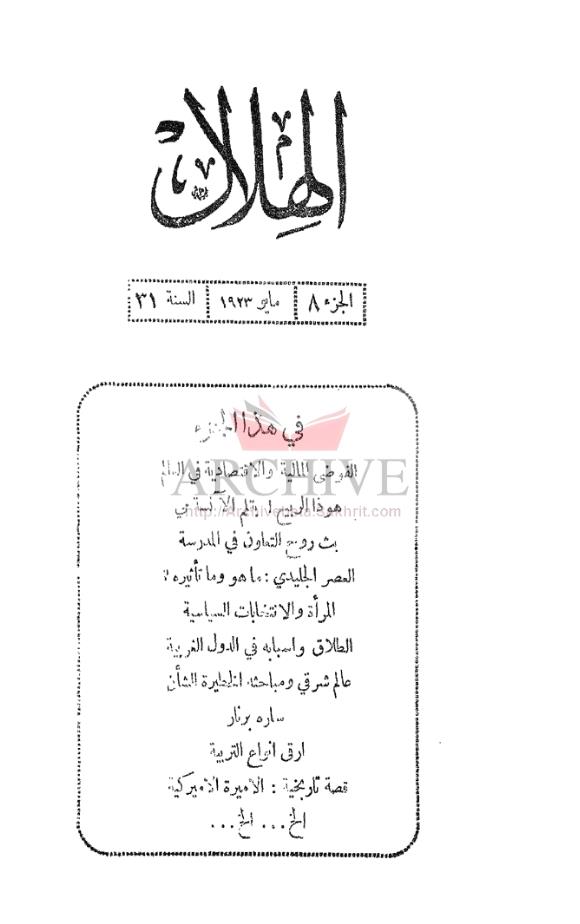 الهلال
الجزء ٨ مايو ١٩٢٣ السنة ٣١
في هذا الجزء
الفوضى المالية والاقتصادية في العالم
ARCHIVE
هوذا الربيع لـ بقلم الآنسة مي
http://Archivebeta.Sakhrit.com
بث روح التعاون في المدرسة
العصر الجليدي : ما هو وما تأثيره ؟
المرأة والانتخابات السياسية
الطلاق واسبابه في الدول الغربية
عالم شرقي ومباحثه الخطيرة الشأن
ساره برنار
ارقى انواع التربية
قصة تاريخية : الاميرة الاميركية
الخ ... الخ ...